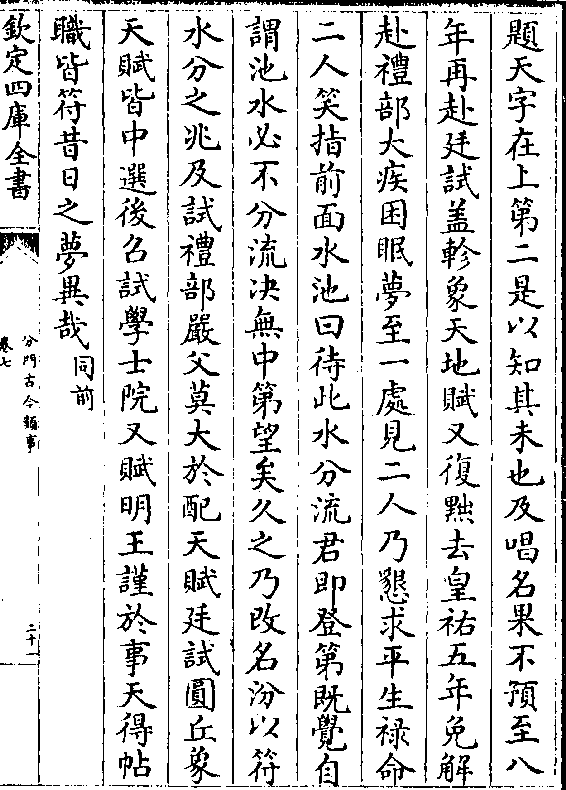 題天字在上第二是以知其未也及唱名果不預至八
年再赴廷試盖軫象天地賦又復黜去皇祐五年免解
赴禮部大疾困眠夢至一處見二人乃懇求平生禄命
二人笑指前面水池曰待此水分流君即登第既覺自
謂池水必不分流决無中第望矣久之乃改名汾以符
水分之兆及試禮部嚴父莫大於配天賦廷試圓丘象
天賦皆中選後召試學士院又賦明王謹於事天得帖
職皆符昔日之夢異哉同前
欽定四庫全書
分門古今類事
卷七
二十一